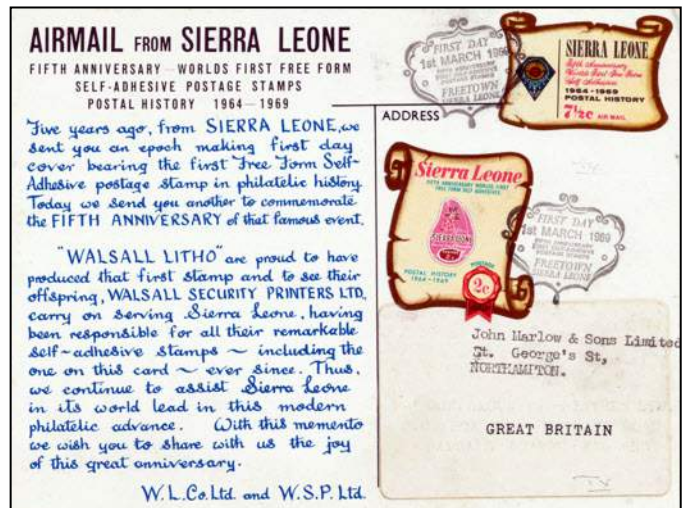 AIRMAIL FROM SIERRA LEONE
FIFTH ANNIVERSARY — WORLDS FIRST FREE FORM
SELF-ADHESIVE POSTAGE STAMPS
POSTAL HISTORY 1964–1969
Five years ago, from SIERRA LEONE, we
sent you an epoch making first day
cover bearing the first Free Form Self-
Adhesive postage stamp in philatelic history.
Today we send you another to commemorate
the FIFTH ANNIVERSARY of that famous event.
"WALSALL LITHO" are proud to have
produced that first stamp and to see their
offspring, WALSALL SECURITY PRINTERS LTD,
carry on serving Sierra Leone, having
been responsible for all their remarkable
self-adhesive stamps ~ including the
one on this card ~ ever since. Thus,
we continue to assist Sierra Leone
in its world lead in this modern
philatelic advance. With this memento
we wish you to share with us the joy
of this great anniversary.
W.L.Co.Ltd. and W.S.P. Ltd.
ADDRESS
FIRST DAY
1st MARCH 1969
FIFTH ANNIVERSARY
SELF-ADHESIVE
POSTAGE STAMPS
FREETOWN
SIERRA LEONE
SIERRA LEONE
Fifth Anniversary
World's First Free Form
Self Adhesives
1964-1969
POSTAL HISTORY
7½c AIR MAIL
Sierra Leone
FIFTH ANNIVERSARY WORLDS FIRST
FREE FORM SELF ADHESIVES
SIERRA LEONE
POSTAL HISTORY
1964-1969
POSTAGE
2c
FIRST DAY
1st MARCH 1969
FIFTH ANNIVERSARY
SELF-ADHESIVE
POSTAGE STAMPS
FREETOWN
SIERRA LEONE
John Marlow & Sons Limited
St. George's St,
NORTHAMPTON.
GREAT BRITAIN